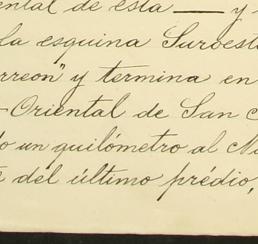 ental de esta — y
la esquina Suroest
rreon" y termina en
-Oriental de San
o un quilómetro al
del último prédio,